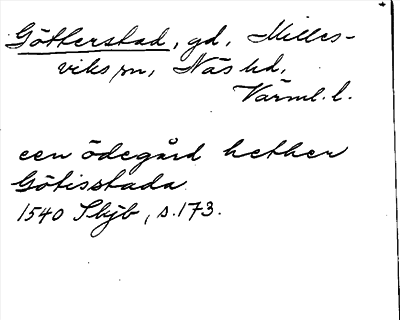 Götterstad, gd, Milles-
viks sn, Näs hd,
Värml. l.
een ödegård hether
Götisstada
1540 Skjb, s. 173.